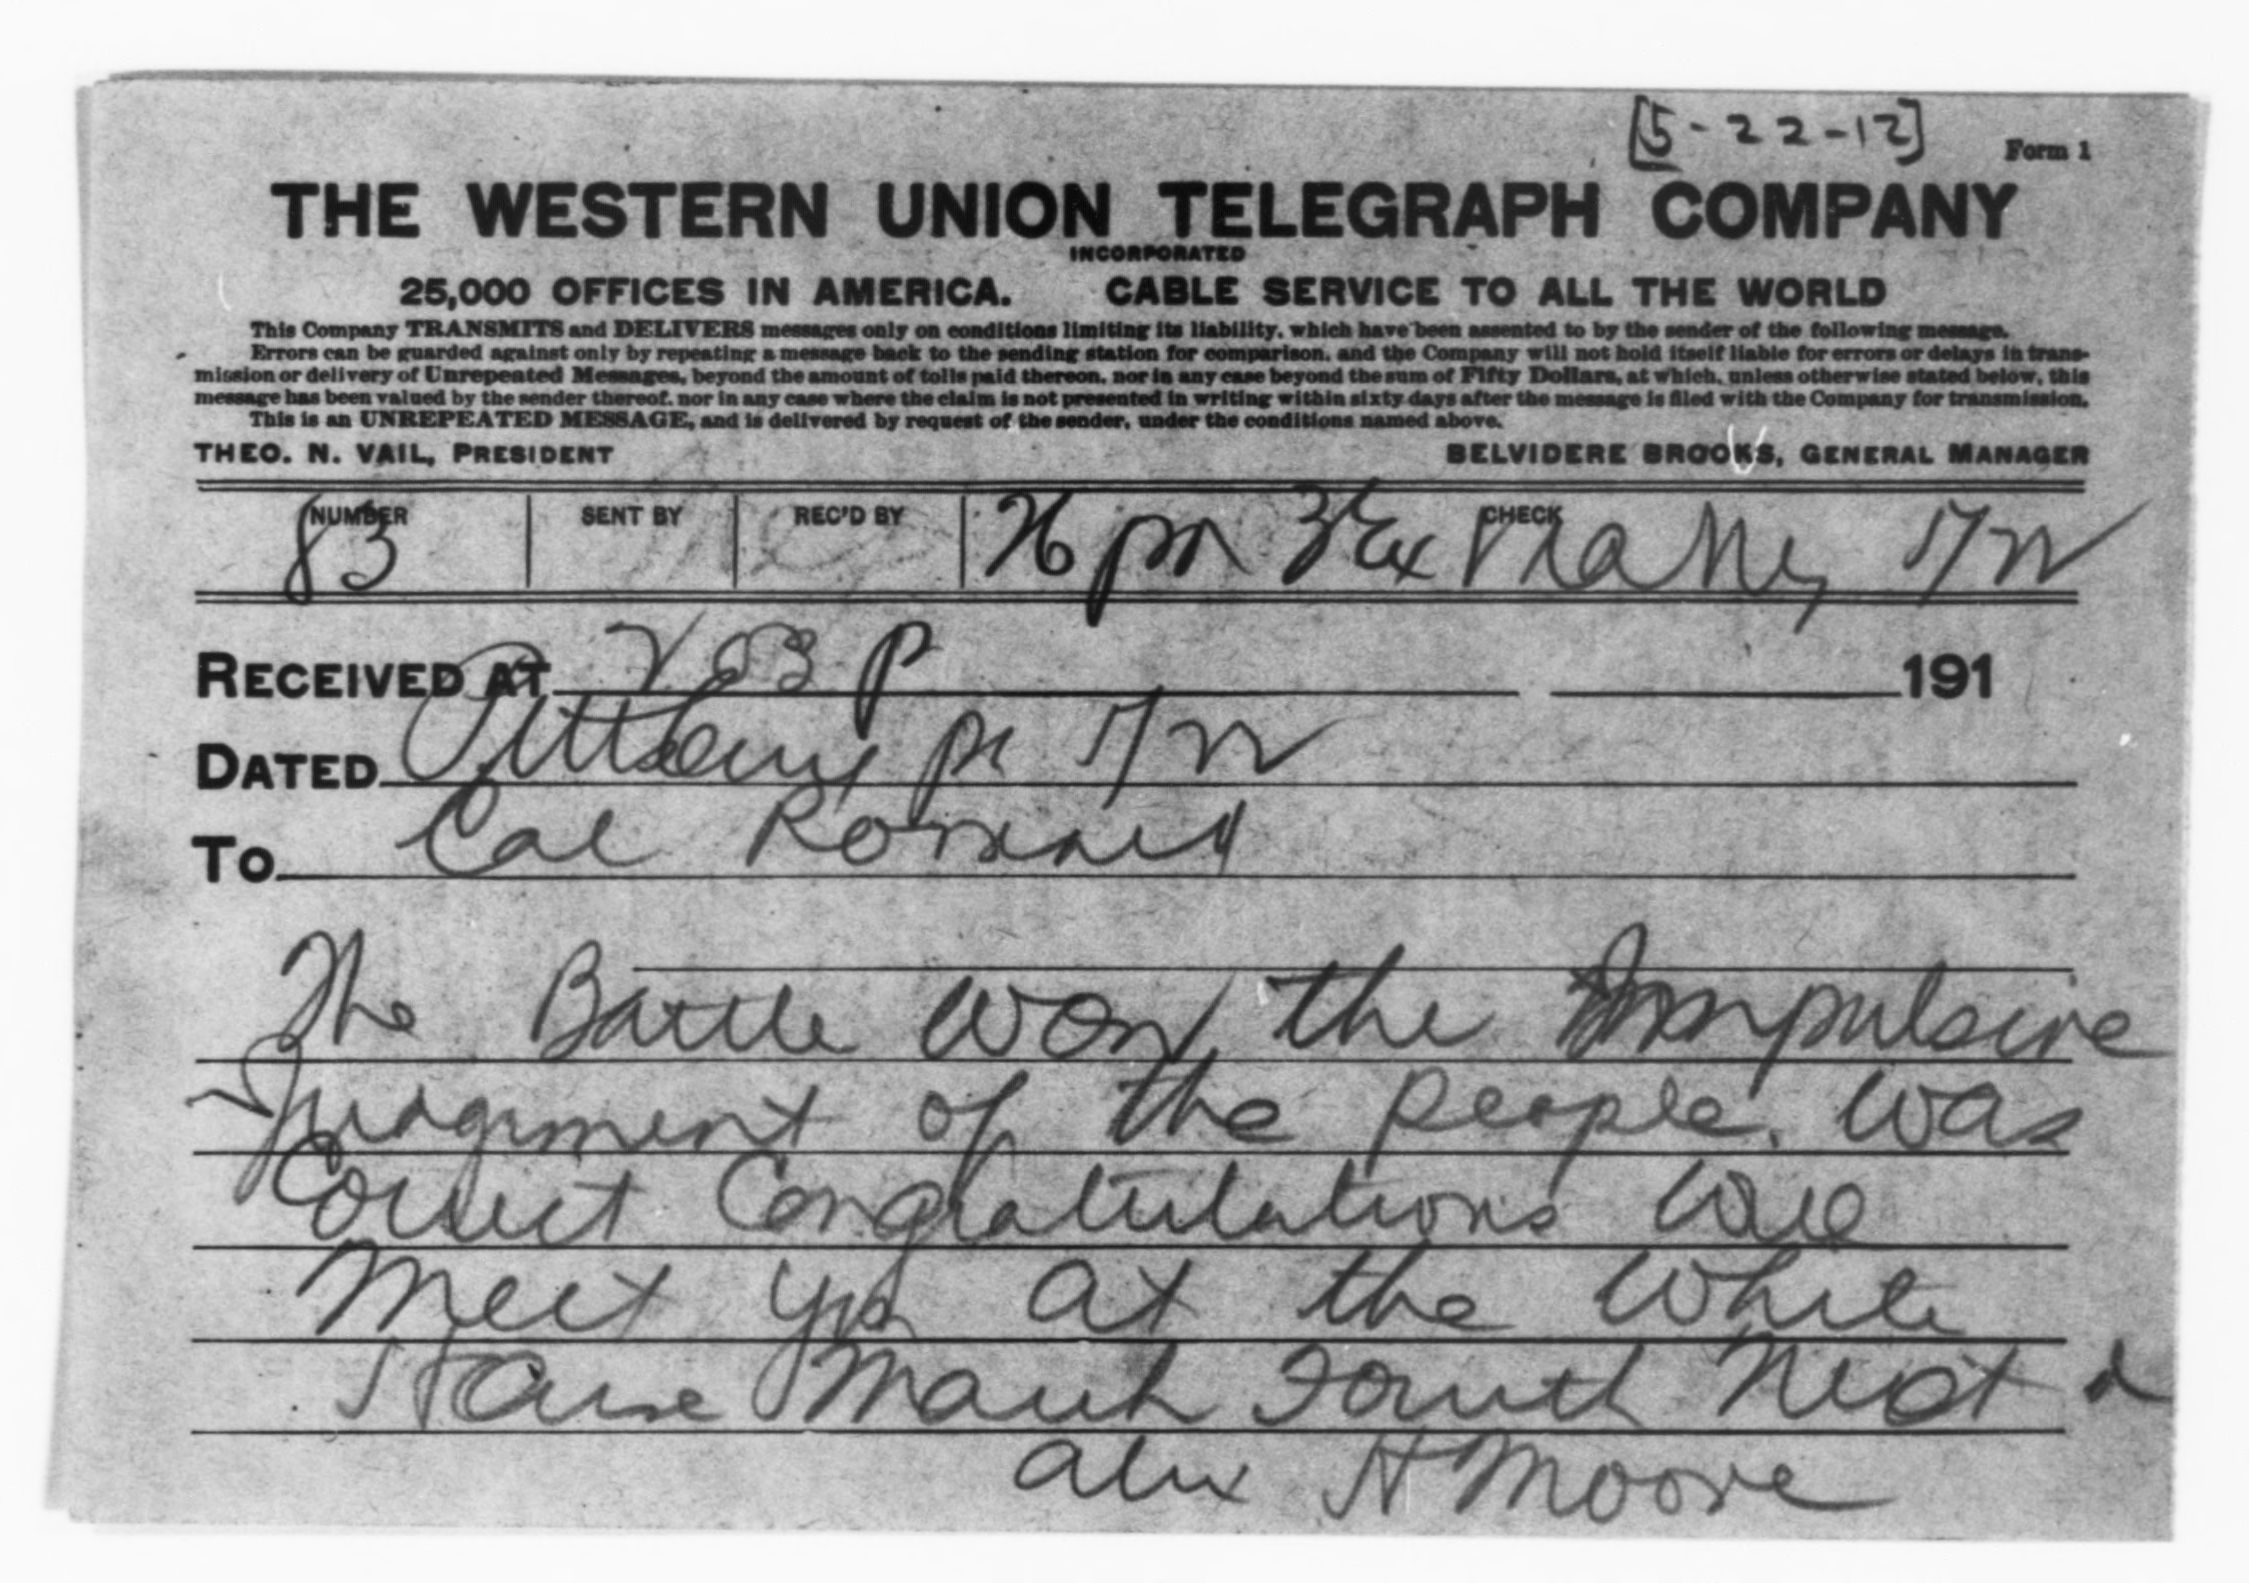 [5-22-12]
Form 1
THE WESTERN UNION TELEGRAPH COMPANY
INCORPORATED
25,000 OFFICES IN AMERICA. CABLE SERVICE TO ALL THE WORLD
This Company TRANSMITS and DELIVERS messages only on conditions limiting its liability, which have been assented to by the sender of the following message.
Errors can be guarded against only by repeating a message back to the sending station for comparison, and the Company will not hold itself liable for errors or delays in trans-
mission or delivery of Unrepeated Messages, beyond the amount of tolls paid thereon, nor in any case beyond the sum of Fifty Dollars, at which, unless otherwise stated below, this
message has been valued by the sender thereof, nor in any case where the claim is not presented in writing within sixty days after the message is filed with the Company for transmission.
This is an UNREPEATED MESSAGE, and is delivered by request of the sender, under the conditions named above.
THEO. N. VAIL, PRESIDENT BELVIDERE BROOKS, GENERAL MANAGER
NUMBER SENT BY REC'D BY CHECK
83
RECEIVED AT P 191
DATED Pittsburg pa
To Col
The Battle won, the Impulsive
Judgment of the people. was
Correct Congratulations Will
Meet you at the White
House March Fourth Next
Alex H Moore